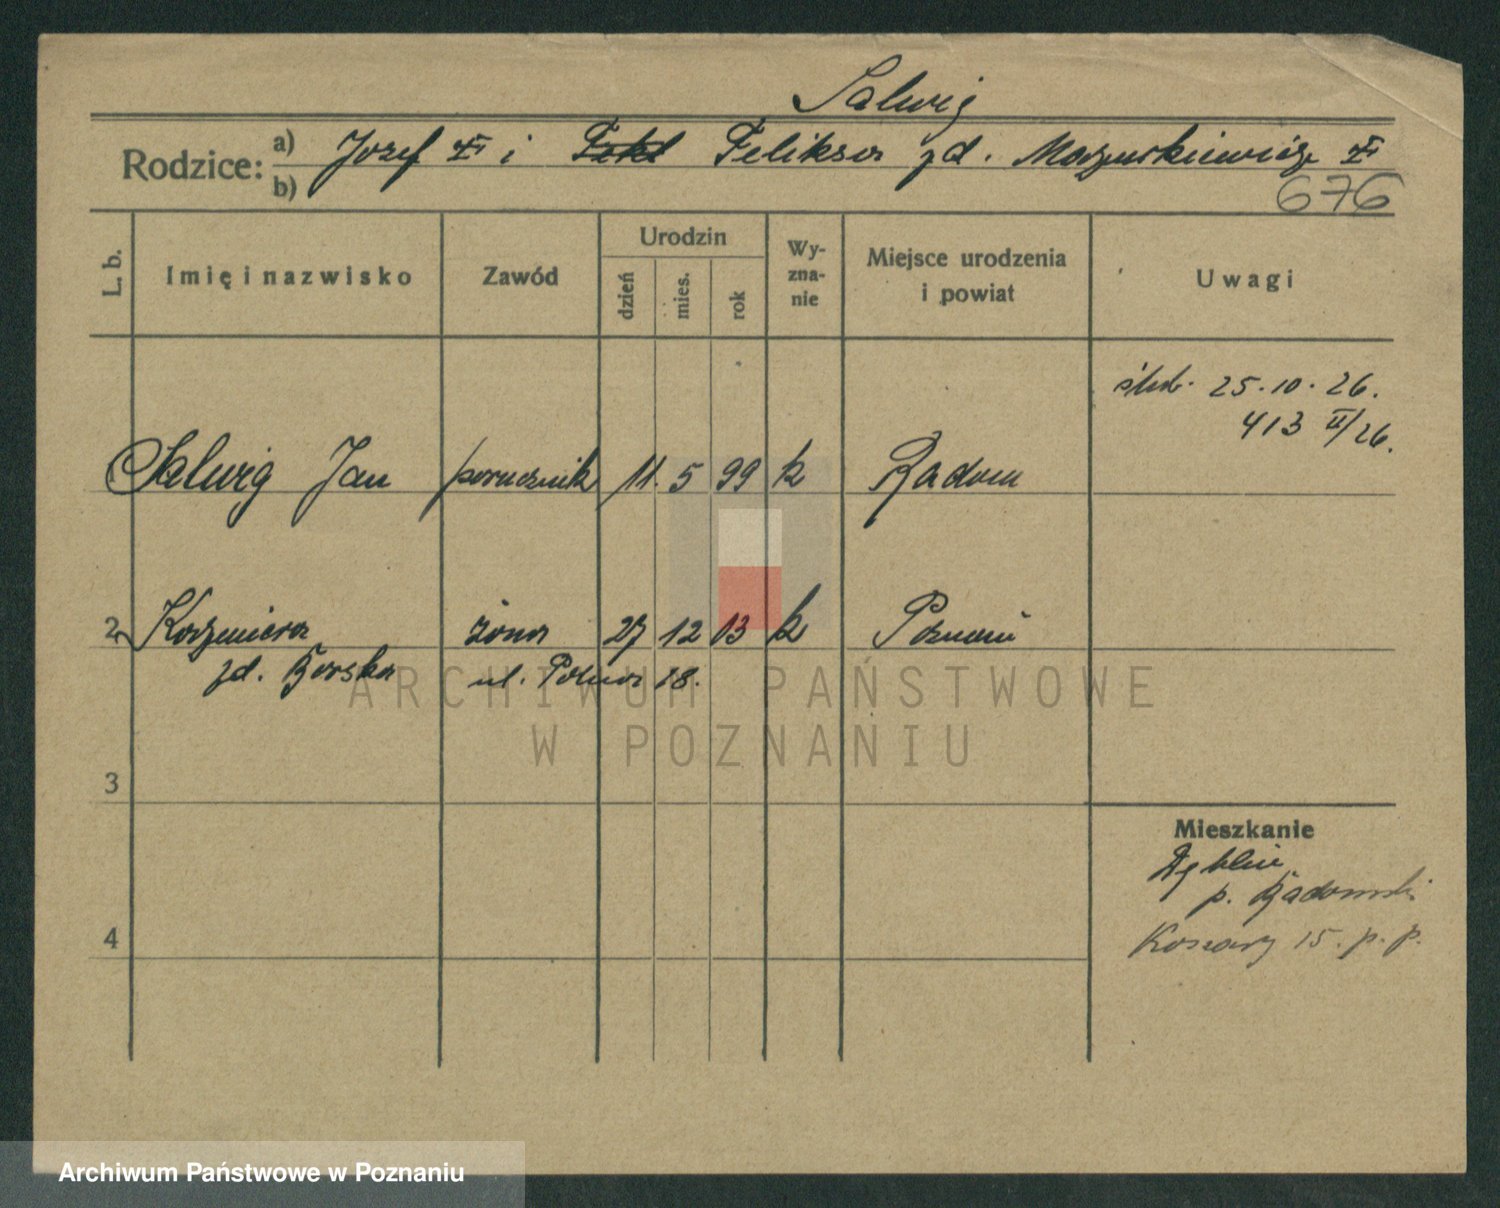 Salwig
Rodzice: a) Józef i Feliksa zd. Mazurkiewicz
b)
676
L. b. Imię i nazwisko Zawód Urodzin dzień mies. rok Wyzna-nie Miejsce urodzenia i powiat Uwagi
ślub. 25.10.26.
413 II/26.
Salwig Jan porucznik 11. 5 99 k Radom
2 Kazimiera żona 27 12 03 k Poznań
zd. Gorska ul. Polna 18.
ARCHIWUM PAŃSTWOWE
W POZNANIU
3
Mieszkanie
Dęblin
p. Radomski
4
Koszary 15. p. p.
Archiwum Państwowe w Poznaniu